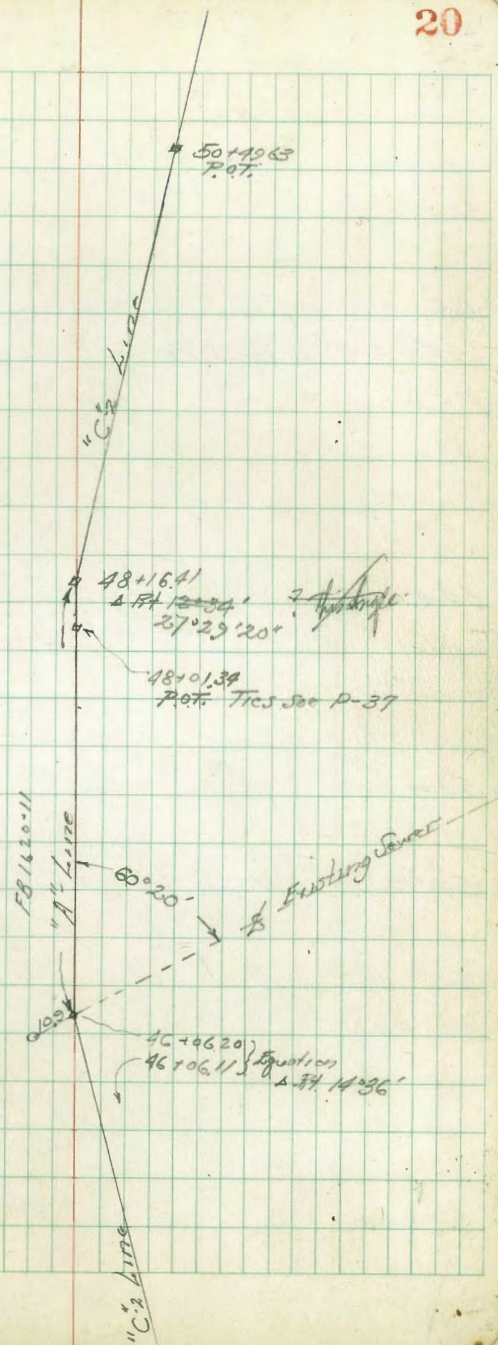 20
50+49.63
P.O.T.
"C"2 Line
48+16.41
Δ Rt 12°34'
27°29'20"
48+01.34
P.O.T. Ties See P-37
FB 1620-11
"A" Line
60°20'
Existing Sewer
46+06.20
46+06.11 } Equation
Δ Rt. 14°36'
"C"2 Line